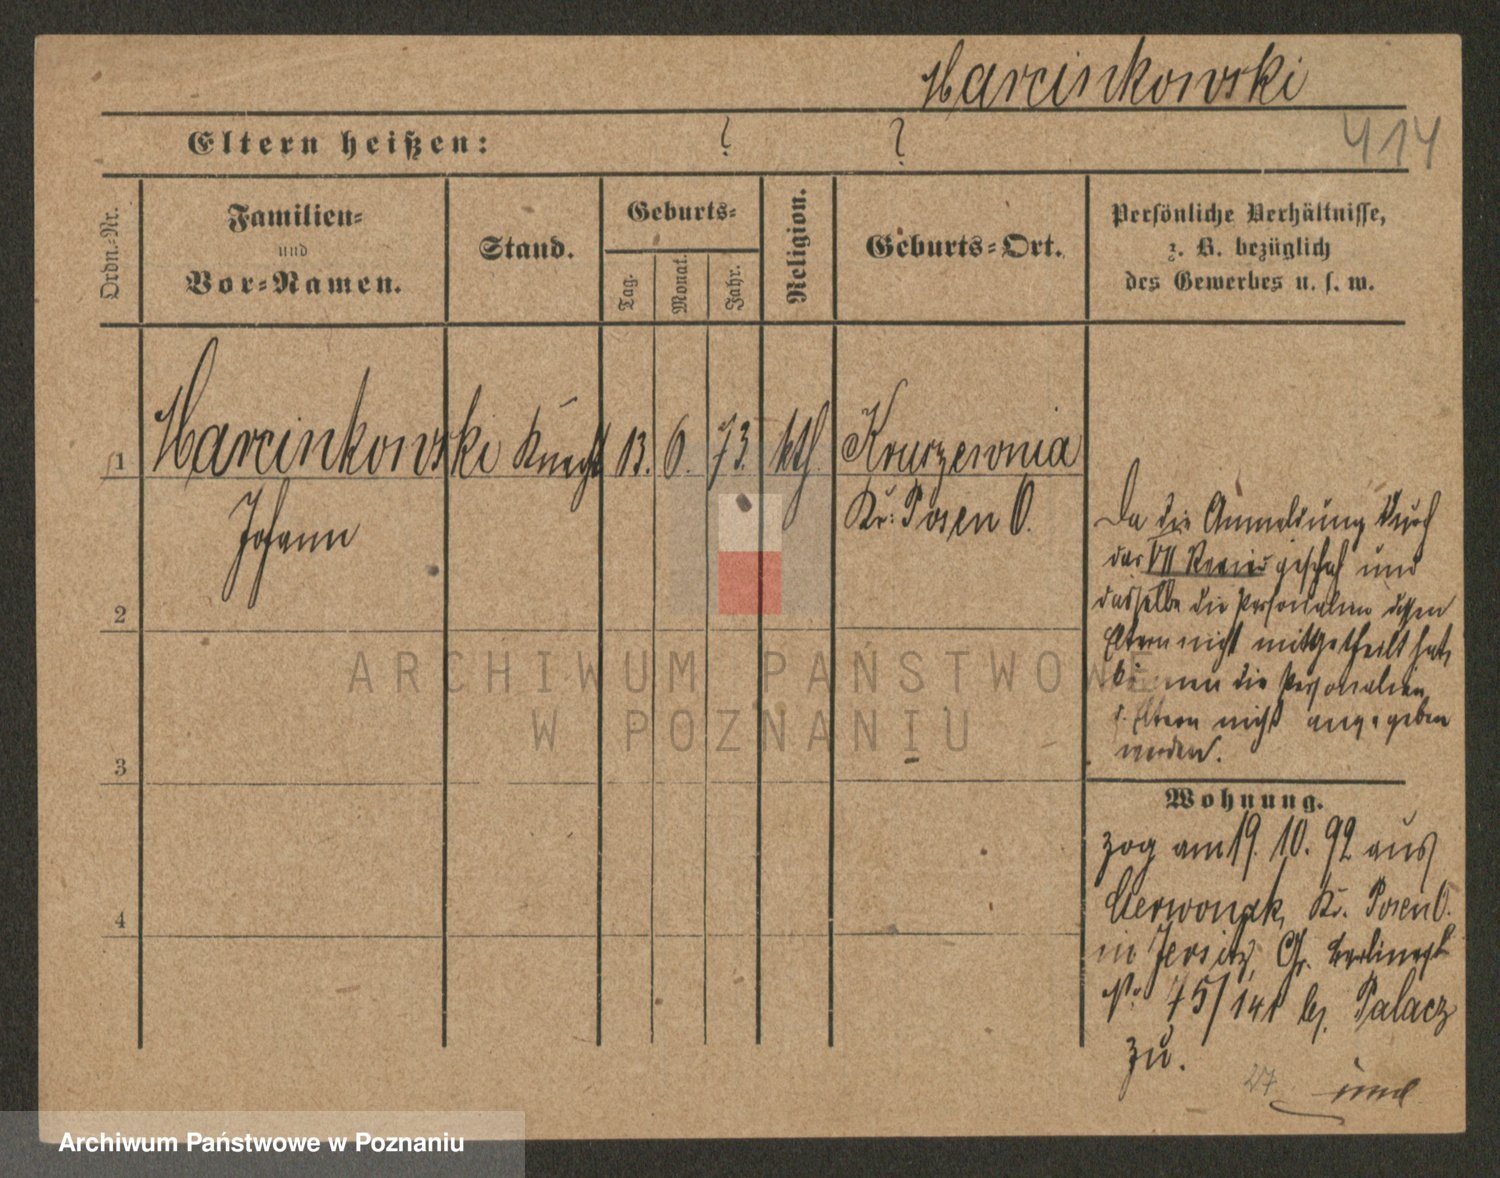 Marcinkowski
Eltern heißen: ? ?
414
Ordn.-Nr.
Familien-
und
Vor-Namen.
Stand.
Geburts-
Tag.
Monat.
Jahr.
Religion.
Geburts-Ort.
Persönliche Verhältnisse,
z. B. bezüglich
des Gewerbes u. s. w.
1 Marcinkowski Knecht 13. 6. 73. kth. Kruszewnia
Johann
Kr: Posen O.
2
3
4
Da die Anmeldung durch
das VII Revier geschah und
dasselbe die Personalien dessen
Eltern nicht mitgetheilt hat,
können die Personalien
d. Eltern nicht angegeben
werden.
Wohnung.
zog am 19. 10. 92 aus
Czerwonak, Kr. Posen O.
in Jersitz, Gr. Berlinerst
No 75/141 bj. Palacz
zu.
27
ARCHIWUM PAŃSTWOWE
W POZNANIU
Archiwum Państwowe w Poznaniu